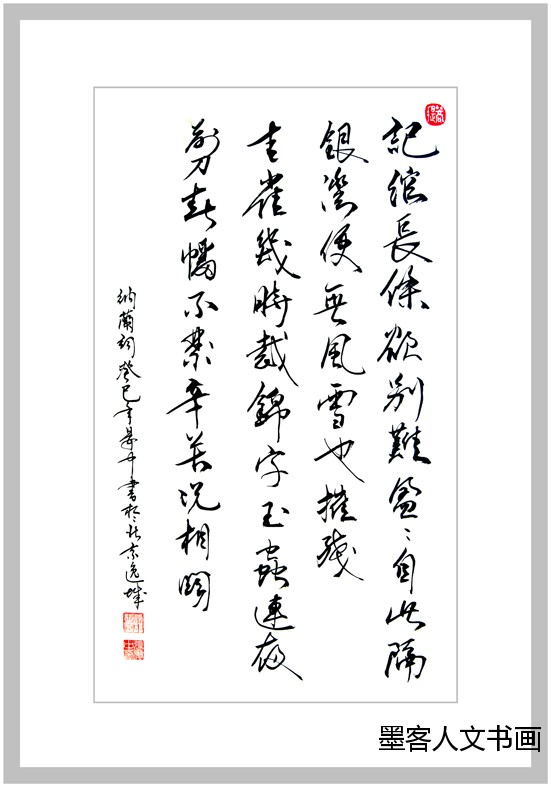 記綰長條欲別難盈〻自此隔
銀灣便無風雪也摧殘
青雀幾時裁錦字玉蟲連夜
剪春幡不禁辛苦況相關
納蘭詞癸巳年書於北京逸城
墨客人文书画